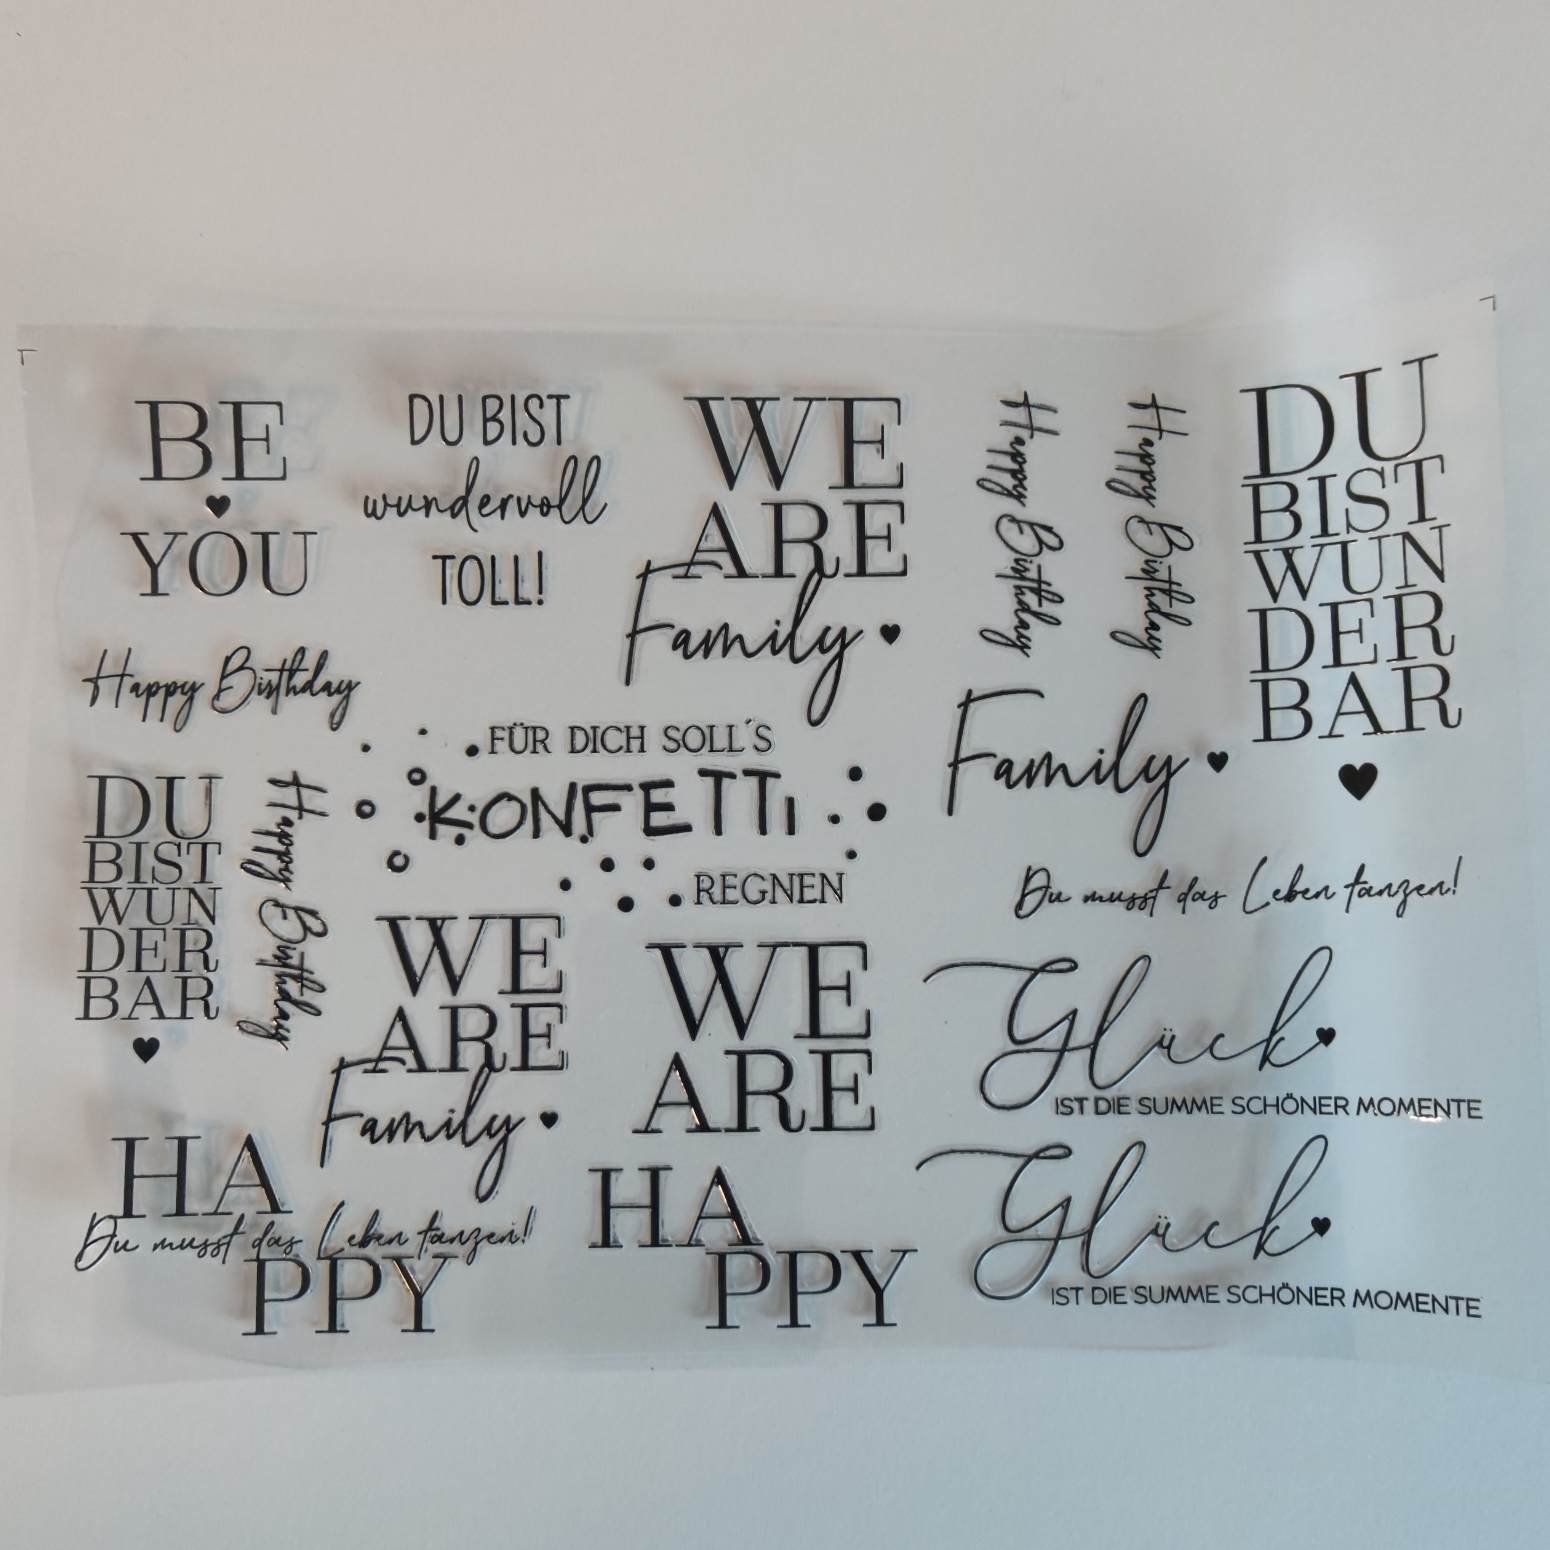 BE
YOU
DU BIST
wundervoll
TOLL!
WE
ARE
Family
Happy Birthday
Happy Birthday
DU
BIST
WUN
DER
BAR
Happy Birthday
FÜR DICH SOLL´S
KONFETTI
REGNEN
Family
DU
BIST
WUN
DER
BAR
Happy Birthday
WE
ARE
Family
WE
ARE
Du musst das Leben tanzen!
Glück
IST DIE SUMME SCHÖNER MOMENTE
HA
Du musst das Leben tanzen!
PPY
HA
PPY
Glück
IST DIE SUMME SCHÖNER MOMENTE